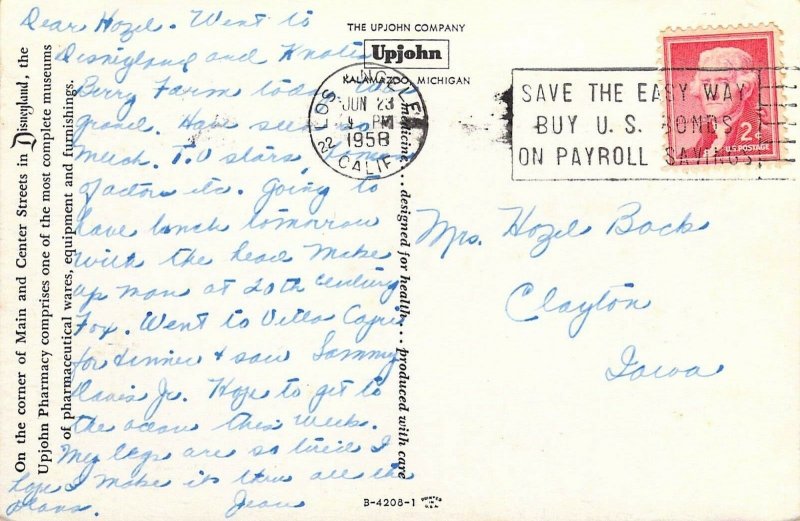 On the corner of Main and Center Streets in Disneyland, the
Upjohn Pharmacy comprises one of the most complete museums
of pharmaceutical wares, equipment and furnishings.
Dear Hazel. Went to
Disneyland and Knotts
Berry Farm today. Was
grand. Have seen so
much. T.V stars
factors etc. Going to
have lunch tomorrow
with the head make
up man at 20th Century
Fox. Went to Villa Capri
for dinner & saw Sammy
Davis Jr. Hope to get to
the ocean this week.
My legs are so tired I
hope I make it thru all the
plans. Jean
THE UPJOHN COMPANY
Upjohn
KALAMAZOO, MICHIGAN
medicine... designed for health... produced with care
LOS ANGELES
22
JUN 23
PM
1958
CALIF
SAVE THE EASY WAY
BUY U.S. BONDS
ON PAYROLL SAVINGS
2¢
U.S. POSTAGE
Mrs. Hazel Back
Clayton
Iowa
B-4208-1 PRINTED IN U.S.A.